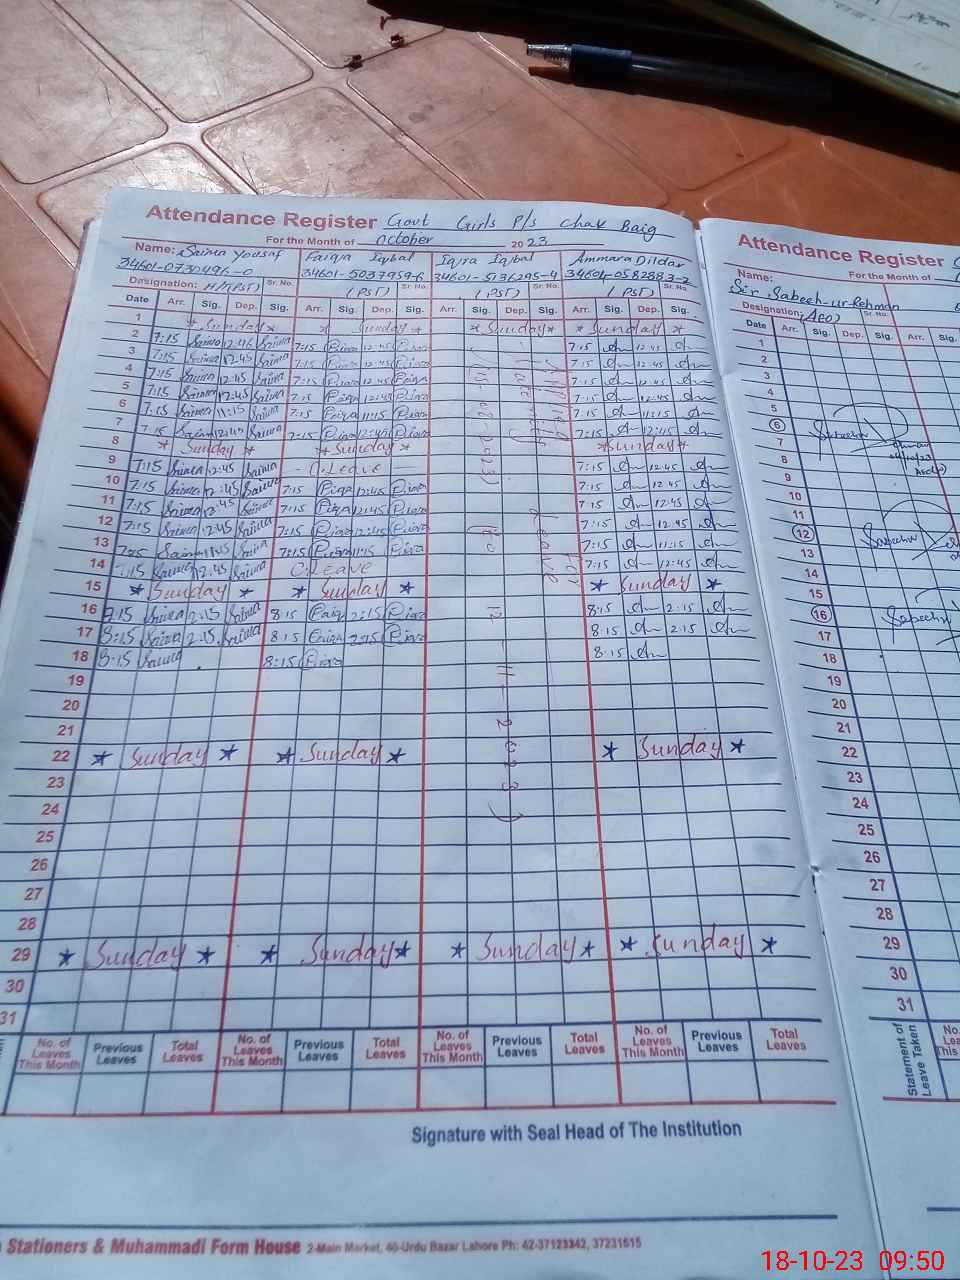 Attendance Register Govt Girls P/S Chak Baig
For the Month of October 2023
Name: Saima Yousaf Faiqa Iqbal Iqra Iqbal Ammara Dildar
34601-0730496-0 34601-5037959-6 34601-5136295-4 34601-0582883-2
Designation: H/T(PST) Sr. No. (PST) Sr. No. (PST) Sr. No. (PST) Sr. No.
Date Arr. Sig. Dep. Sig. Arr. Sig. Dep. Sig. Arr. Sig. Dep. Sig. Arr. Sig. Dep. Sig.
1 * Sunday * * Sunday * * Sunday * * Sunday *
2 7:15 Saima 12:45 Saima 7:15 Faiqa 12:45 Faiqa 7:15 12:45
3 7:15 Saima 12:45 Saima 7:15 Faiqa 12:45 Faiqa 7:15 12:45
4 7:15 Saima 12:45 Saima 7:15 Faiqa 12:45 Faiqa 7:15 12:45
5 7:15 Saima 12:45 Saima 7:15 Faiqa 12:45 Faiqa 7:15 12:45
6 7:15 Saima 11:15 Saima 7:15 Faiqa 11:15 Faiqa 7:15 11:15
7 7:15 Saima 12:45 Saima 7:15 Faiqa 12:45 Faiqa 7:15 12:45
8 * Sunday * * Sunday * * Sunday *
9 7:15 Saima 12:45 Saima - C.Leave - 7:15 12:45
10 7:15 Saima 12:45 Saima 7:15 Faiqa 12:45 Faiqa 7:15 12:45
11 7:15 Saima 12:45 Saima 7:15 Faiqa 12:45 Faiqa 7:15 12:45
12 7:15 Saima 12:45 Saima 7:15 Faiqa 12:45 Faiqa 7:15 12:45
13 7:15 Saima 11:15 Saima 7:15 Faiqa 11:15 Faiqa 7:15 11:15
14 7:15 Saima 12:45 Saima C.Leave 7:15 12:45
15 * Sunday * * Sunday * * Sunday *
16 8:15 Saima 2:15 Saima 8:15 Faiqa 2:15 Faiqa 8:15 2:15
17 8:15 Saima 2:15 Saima 8:15 Faiqa 2:15 Faiqa 8:15 2:15
18 8:15 Saima 8:15 Faiqa 8:15
19
20
21
22 * Sunday * * Sunday * * Sunday *
23
24
25
26
27
28
29 * Sunday * * Sunday * * Sunday * * Sunday *
30
31
Maternity Leave
2023) To 12-11-2023)
No. of Leaves This Month Previous Leaves Total Leaves No. of Leaves This Month Previous Leaves Total Leaves No. of Leaves This Month Previous Leaves Total Leaves No. of Leaves This Month Previous Leaves Total Leaves
Signature with Seal Head of The Institution
Stationers & Muhammadi Form House 2-Main Market, 40-Urdu Bazar Lahore Ph: 42-37123342, 37231615
Attendance Register
For the Month of
Name:
Sir. Sabeeh-ur-Rehman
Designation: (AEO) Sr. No.
Date Arr. Sig. Dep. Sig. Arr. Sig.
1
2
3
4
5
6
7
8
9
10
11
12
13
14
15
16
17
18
19
20
21
22
23
24
25
26
27
28
29
30
31
Statement of Leave Taken
18-10-23 09:50